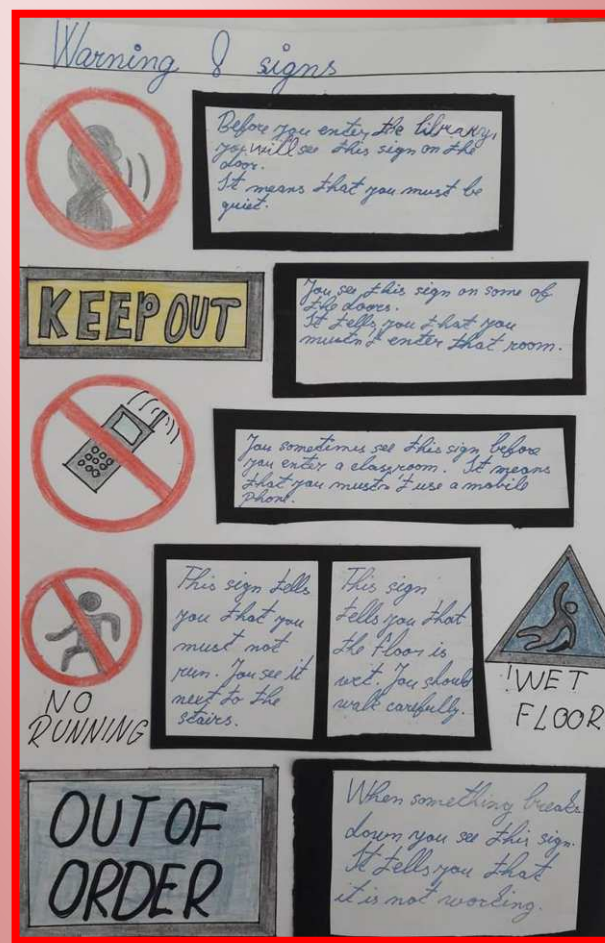 Warning & signs
Before you enter the library,
you will see this sign on the
door.
It means that you must be
quiet.
KEEP OUT
You see this sign on some of
the doors.
It tells you that you
mustn't enter that room.
You sometimes see this sign before
you enter a classroom. It means
that you mustn't use a mobile
phone.
NO
RUNNING
This sign tells
you that you
must not
run. You see it
next to the
stairs.
This sign
tells you that
the floor is
wet. You should
walk carefully.
!WET
FLOOR
OUT OF
ORDER
When something breaks
down you see this sign.
It tells you that
it is not working.